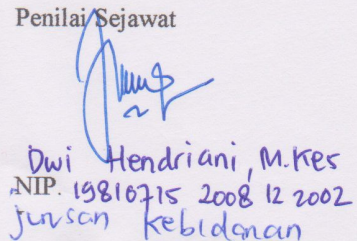 Penilai Sejawat
Dwi Hendriani, M.Kes
NIP. 19810715 2008 12 2002
Jurusan Kebidanan